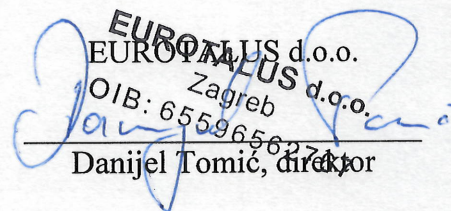 EUROTALUS d.o.o.
EUROTALUS d.o.o.
Zagreb
OIB:
Danijel Tomić, direktor